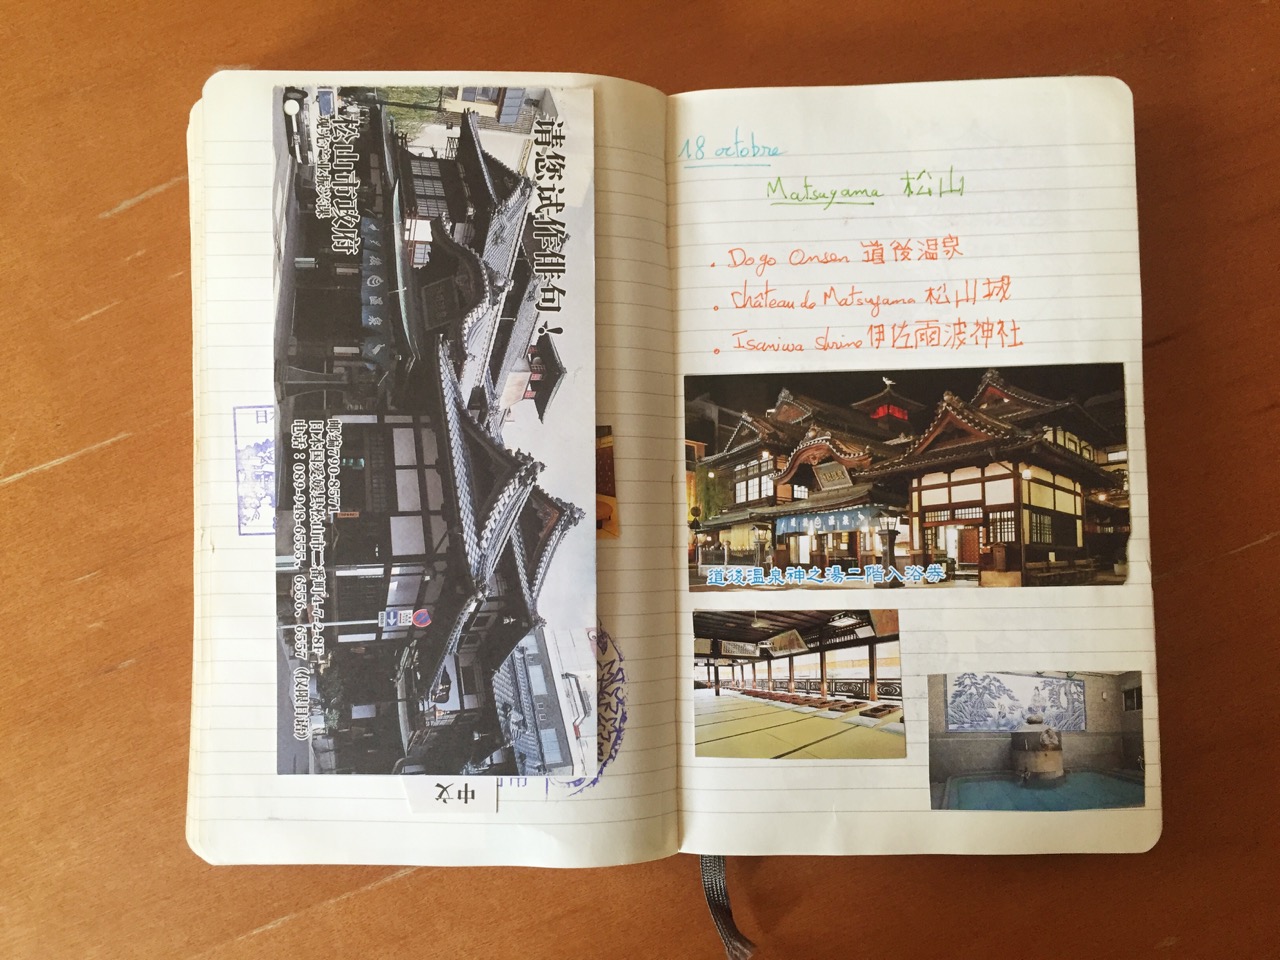 请您试作俳句！
松山市政府
邮编790-8571
日本国爱媛县松山市二番町4-7-2-8F
电话：089-948-6555、6556、6557（仅限日语）
中文
18 octobre
Matsuyama 松山
. Dogo Onsen 道後温泉
. Château de Matsuyama 松山城
. Isaniwa shrine 伊佐爾波神社
道後温泉
道後温泉神之湯二階入浴券